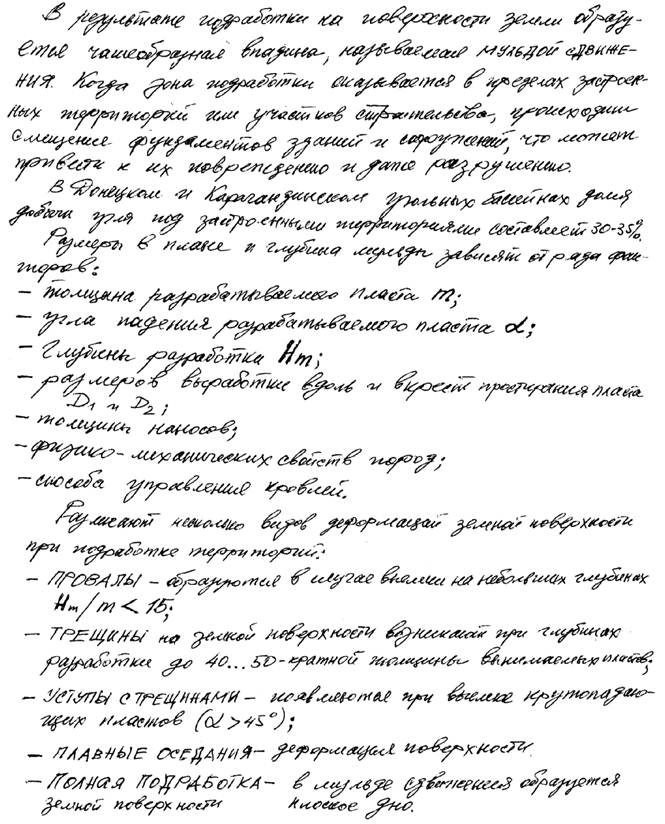 В результате подработки на поверхности земли образу-
ется чашеобразная впадина, называемая МУЛЬДОЙ СДВИЖЕ-
НИЯ. Когда зона подработки оказывается в пределах застроен-
ных территорий или участков строительства, происходит
смещение фундаментов зданий и сооружений, что может
привести к их повреждению и даже разрушению.
В Донецком и Карагандинском угольных бассейнах доля
добычи угля под застроенными территориями составляет 30-35%.
Размеры в плане и глубина мульды зависят от ряда фак-
торов:
- толщина разрабатываемого пласта m;
- угла падения разрабатываемого пласта α;
- глубины разработки Hm;
- размеров выработки вдоль и вкрест простирания пласта
D1 и D2;
- толщины наносов;
- физико-механических свойств пород;
- способа управления кровлей.
Различают несколько видов деформаций земной поверхности
при подработке территорий:
- ПРОВАЛЫ - образуются в случае выемки на небольших глубинах
Hm/m < 15;
- ТРЕЩИНЫ на земной поверхности возникают при глубинах
разработки до 40...50-кратной толщины вынимаемых пластов;
- УСТУПЫ С ТРЕЩИНАМИ - появляются при выемке крутопадаю-
щих пластов (α > 45°);
- ПЛАВНЫЕ ОСЕДАНИЯ - деформация поверхности.
- ПОЛНАЯ ПОДРАБОТКА - в мульде сдвижения образуется
земной поверхности плоское дно.